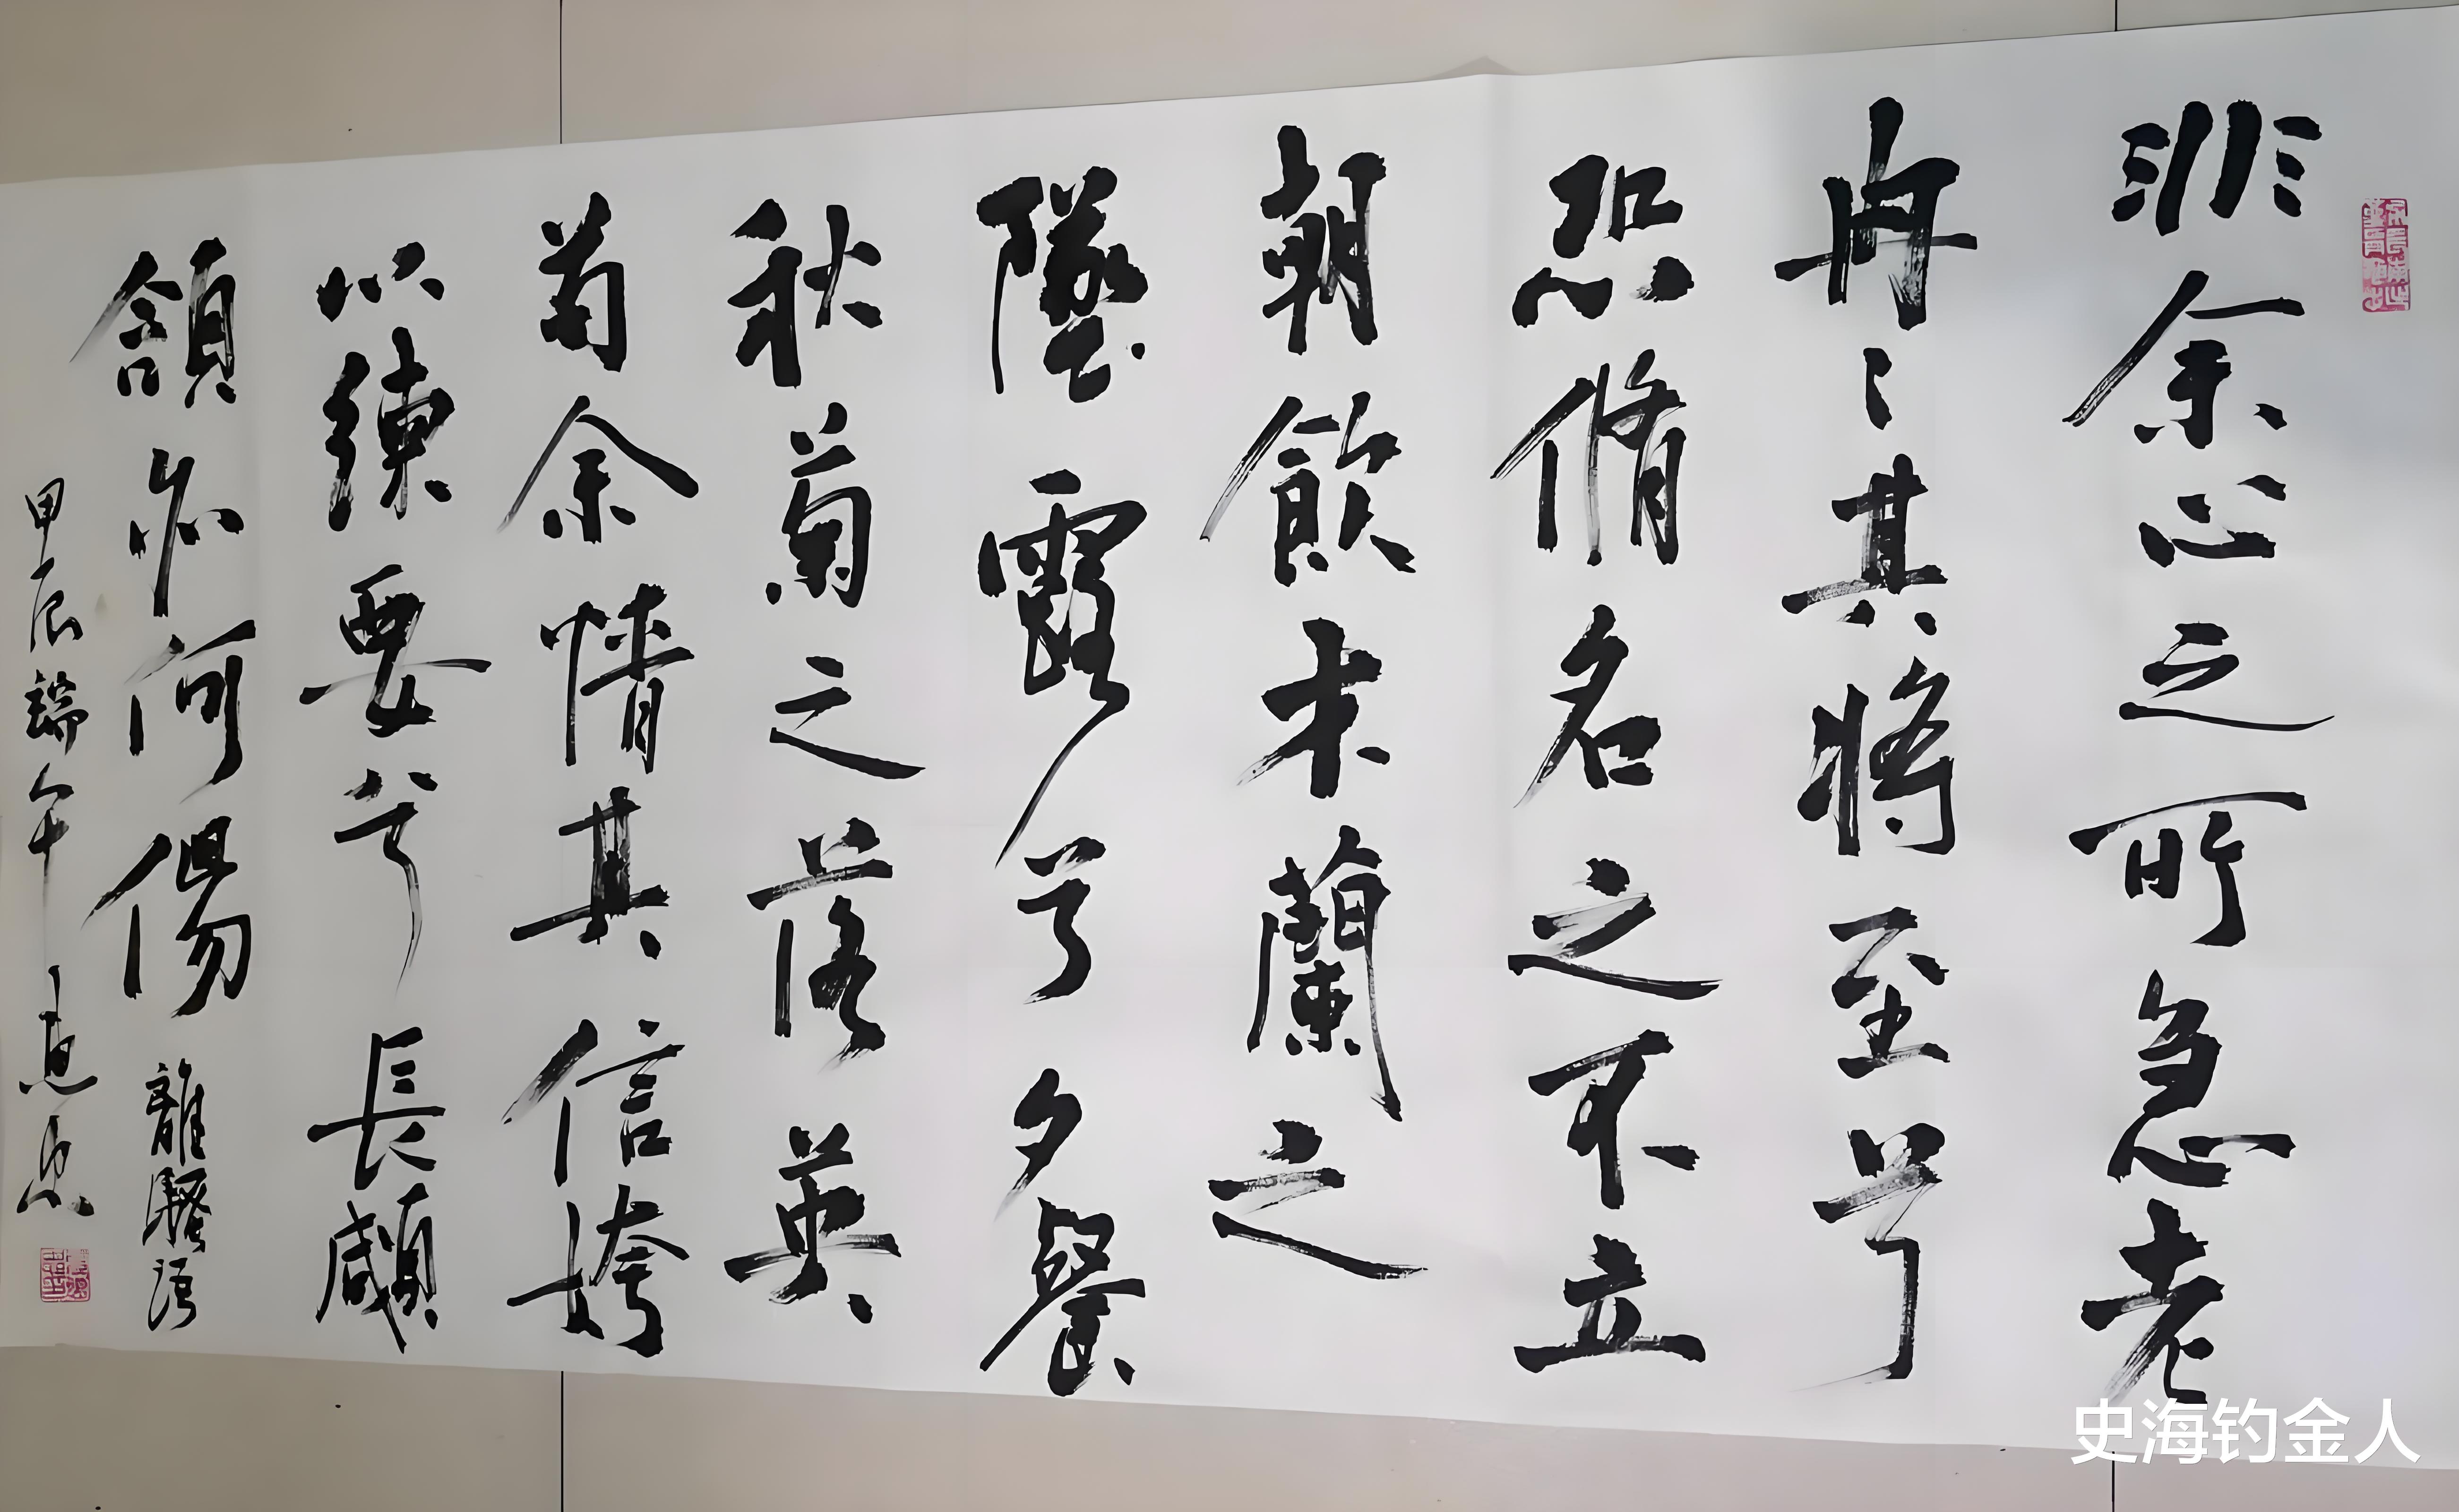 非余心之所急老
冉々其將至兮
恐脩名之不立
朝飲木蘭之
墜露兮夕餐
秋菊之落英
苟余情其信姱
以練要兮長顑
頷亦何傷 離騷語
甲辰端午
史海钓金人